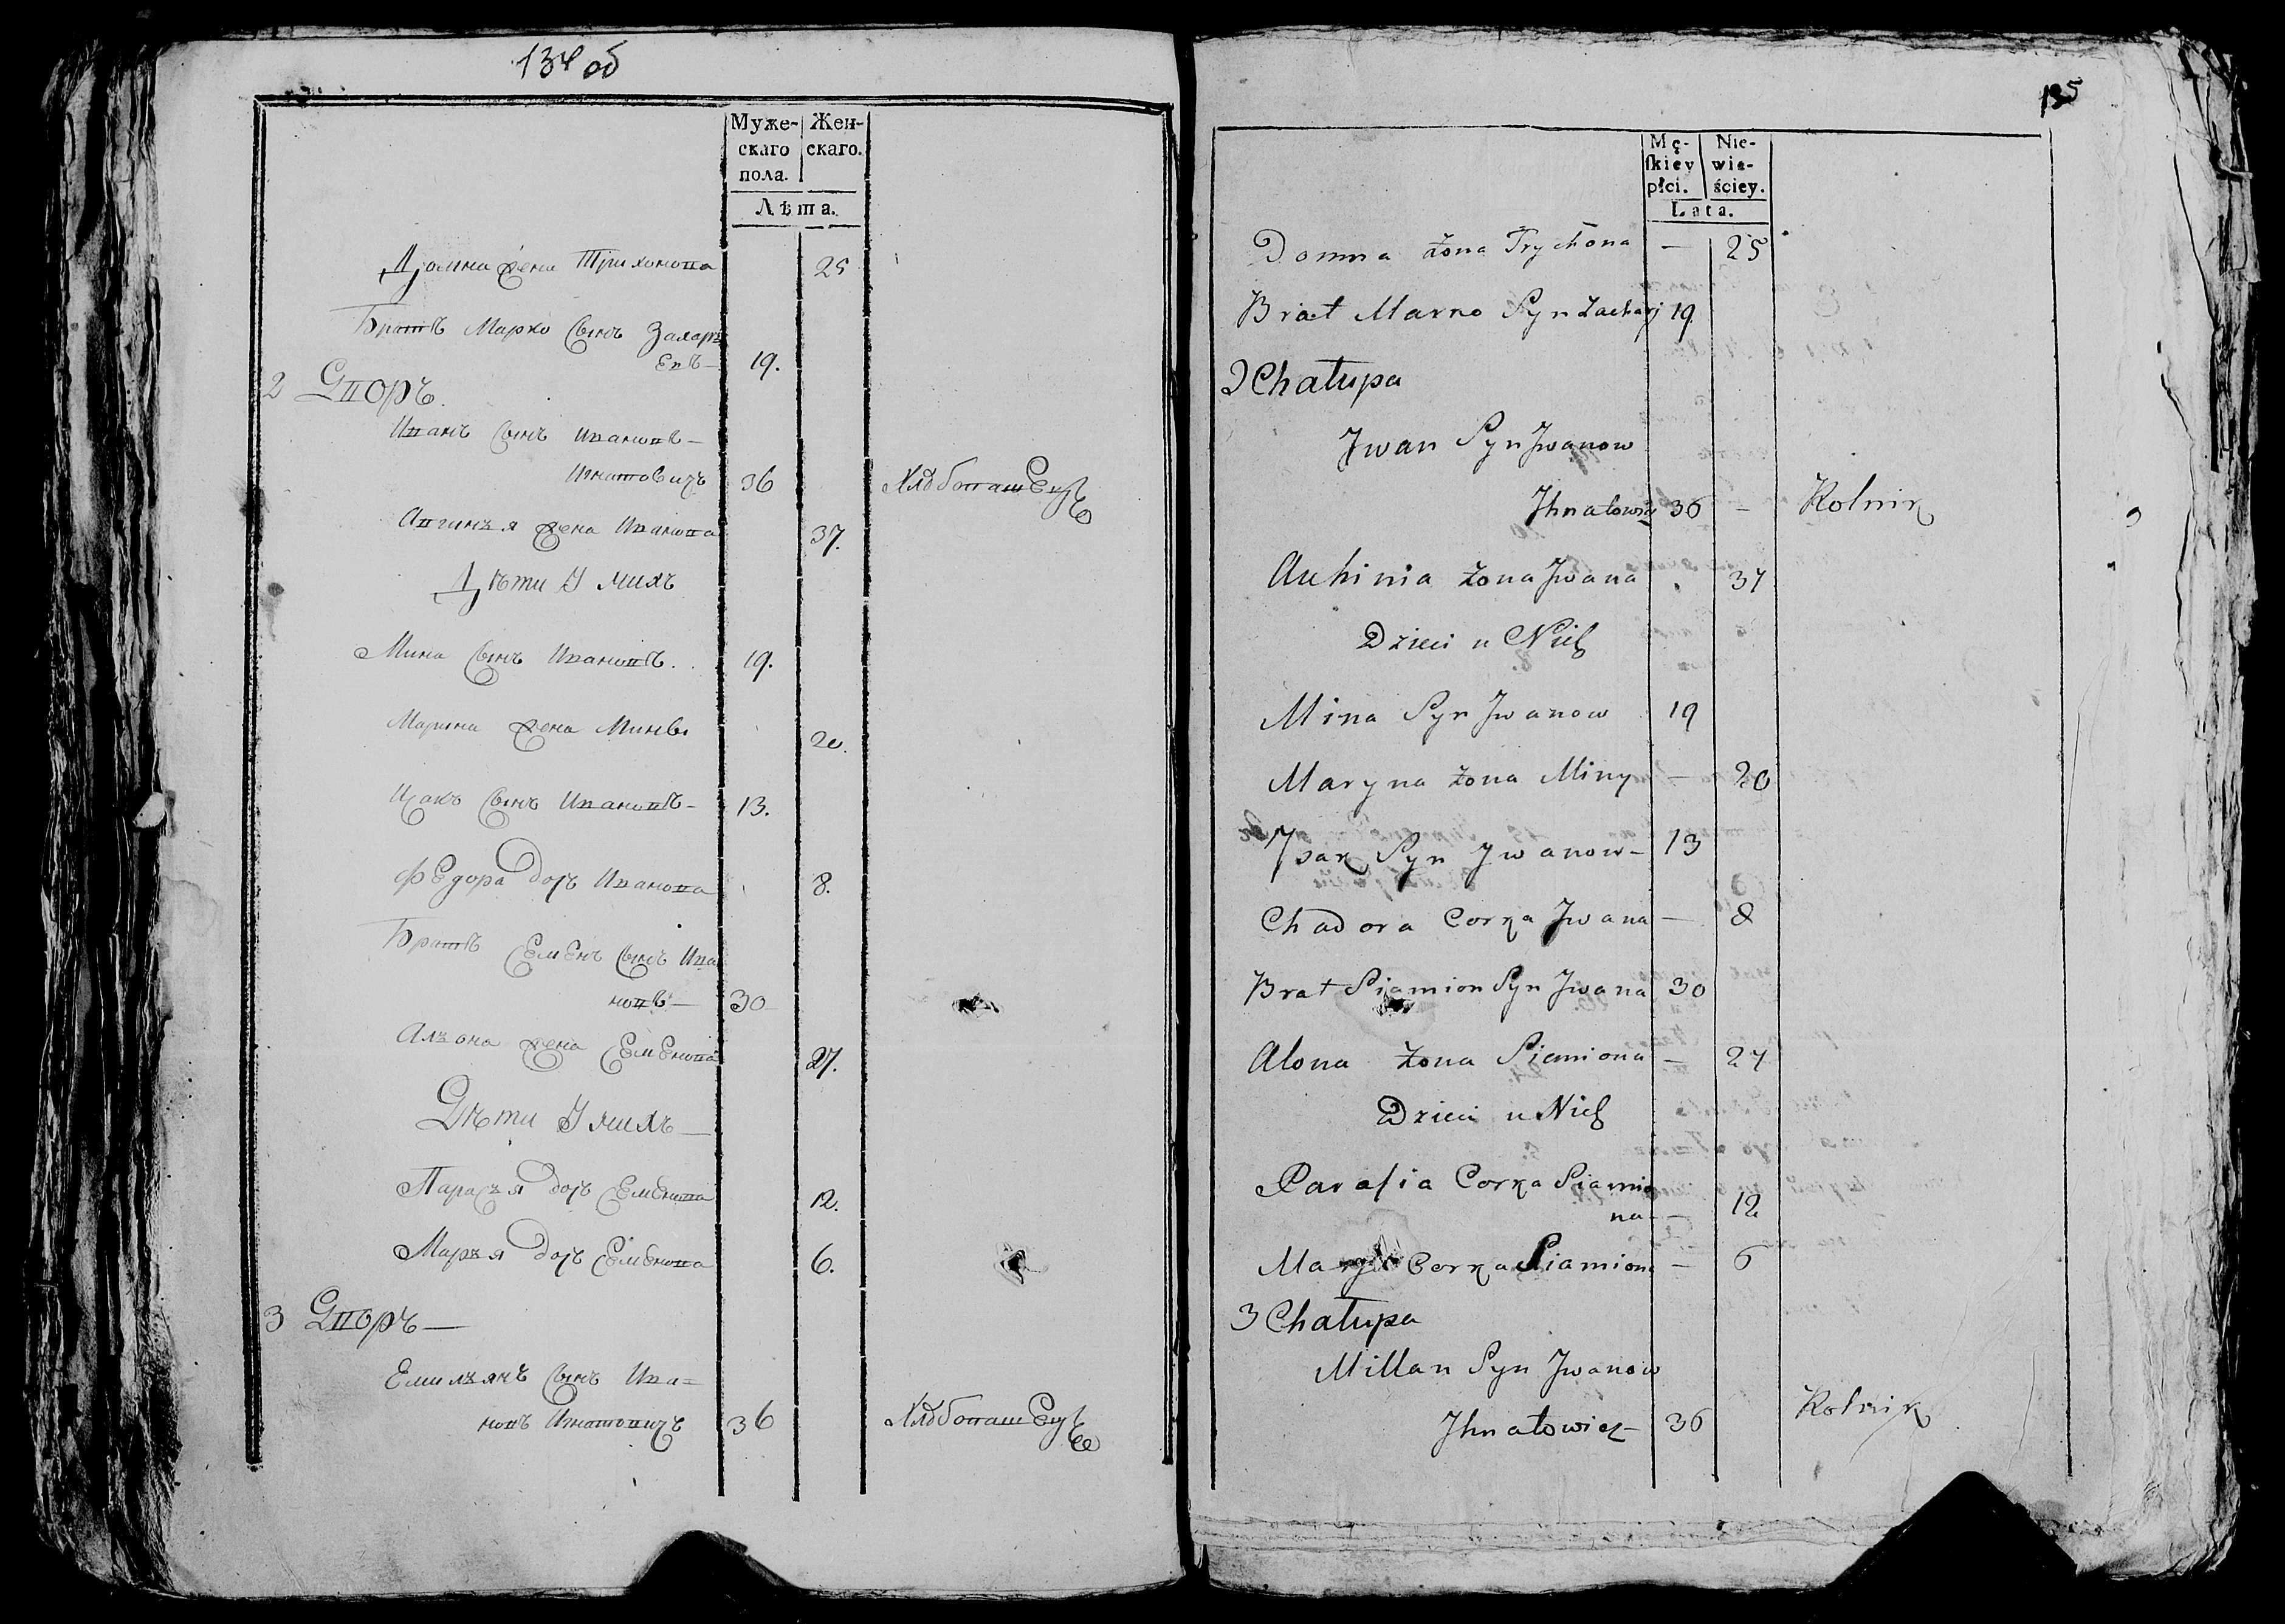 134 об
Муже-
скаго
пола.
Жен-
скаго.
Лѣта.
Домна жена Трихонова 25
Братъ Марко Сынъ Захарь
евъ — 19.
2 Дворъ.
Иванъ Сынъ Ивановъ —
Игнатовичъ 36 Хлѣбопашецъ
Авгинья жена Иванова 37.
Дѣти У нихъ
Мина Сынъ Ивановъ. 19.
Марина жена Мины 20.
Исакъ Сынъ Ивановъ — 13.
Федора дочь Иванова 8.
Братъ Семенъ Сынъ Ива
новъ — 30
Алъона жена Семенова 27.
Дѣти У нихъ —
Парасья дочь Семенова 12.
Марья дочь Семенова 6.
3 Дворъ —
Емильянъ Сынъ Ива=
новъ Игнатовичъ 36 Хлѣбопашецъ
135
Mę-
skiey
płci.
Nie-
wie-
ściey.
Lata.
Domna żona Trychona — 25
Brat Marko Syn Zacharj 19.
2 Chałupa
Jwan Syn Jwanow
Jhnatowicz 36 — Rolnik
Auhinia żona Jwana 37
Dzieci u Nich
Mina Syn Jwanow 19
Maryna żona Miny — 20
Jsak Syn Jwanow — 13
Chadora Corka Jwana — 8
Brat Siamion Syn Jwana 30
Alona żona Siemiona — 27
Dzieci u Nich
Parasia Corka Siamio
na — 12
Marja Corka Siamiona — 6
3 Chałupa
Millan Syn Jwanow
Jhnatowicz — 36 Rolnik